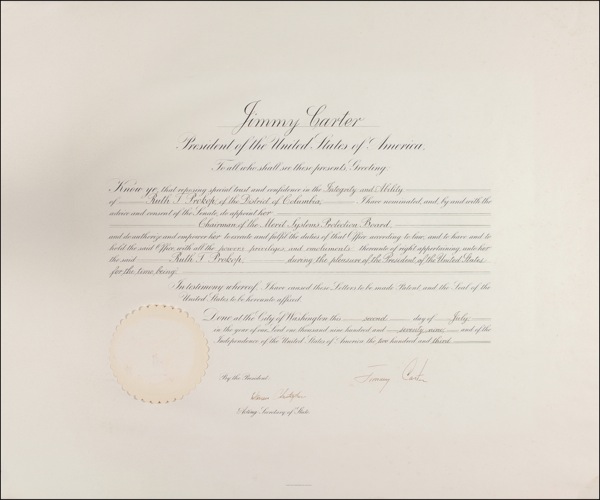 Jimmy Carter
President of the United States of America.
To all who shall see these presents, Greeting:
Know ye, that reposing special trust and confidence in the Integrity and Ability
of Ruth T. Prokop, of the District of Columbia, I have nominated, and, by and with the
advice and consent of the Senate, do appoint her
Chairman of the Merit Systems Protection Board
and do authorize and empower her to execute and fulfil the duties of that Office according to law, and to have and to
hold the said Office, with all the powers, privileges, and emoluments thereunto of right appertaining, unto her
the said Ruth T. Prokop, during the pleasure of the President of the United States
for the time being.
In testimony whereof, I have caused these Letters to be made Patent, and the Seal of the
United States to be hereunto affixed.
Done at the City of Washington this second day of July
in the year of our Lord one thousand nine hundred and seventy-nine and of the
Independence of the United States of America the two hundred and third.
By the President:
Jimmy Carter
Acting Secretary of State.